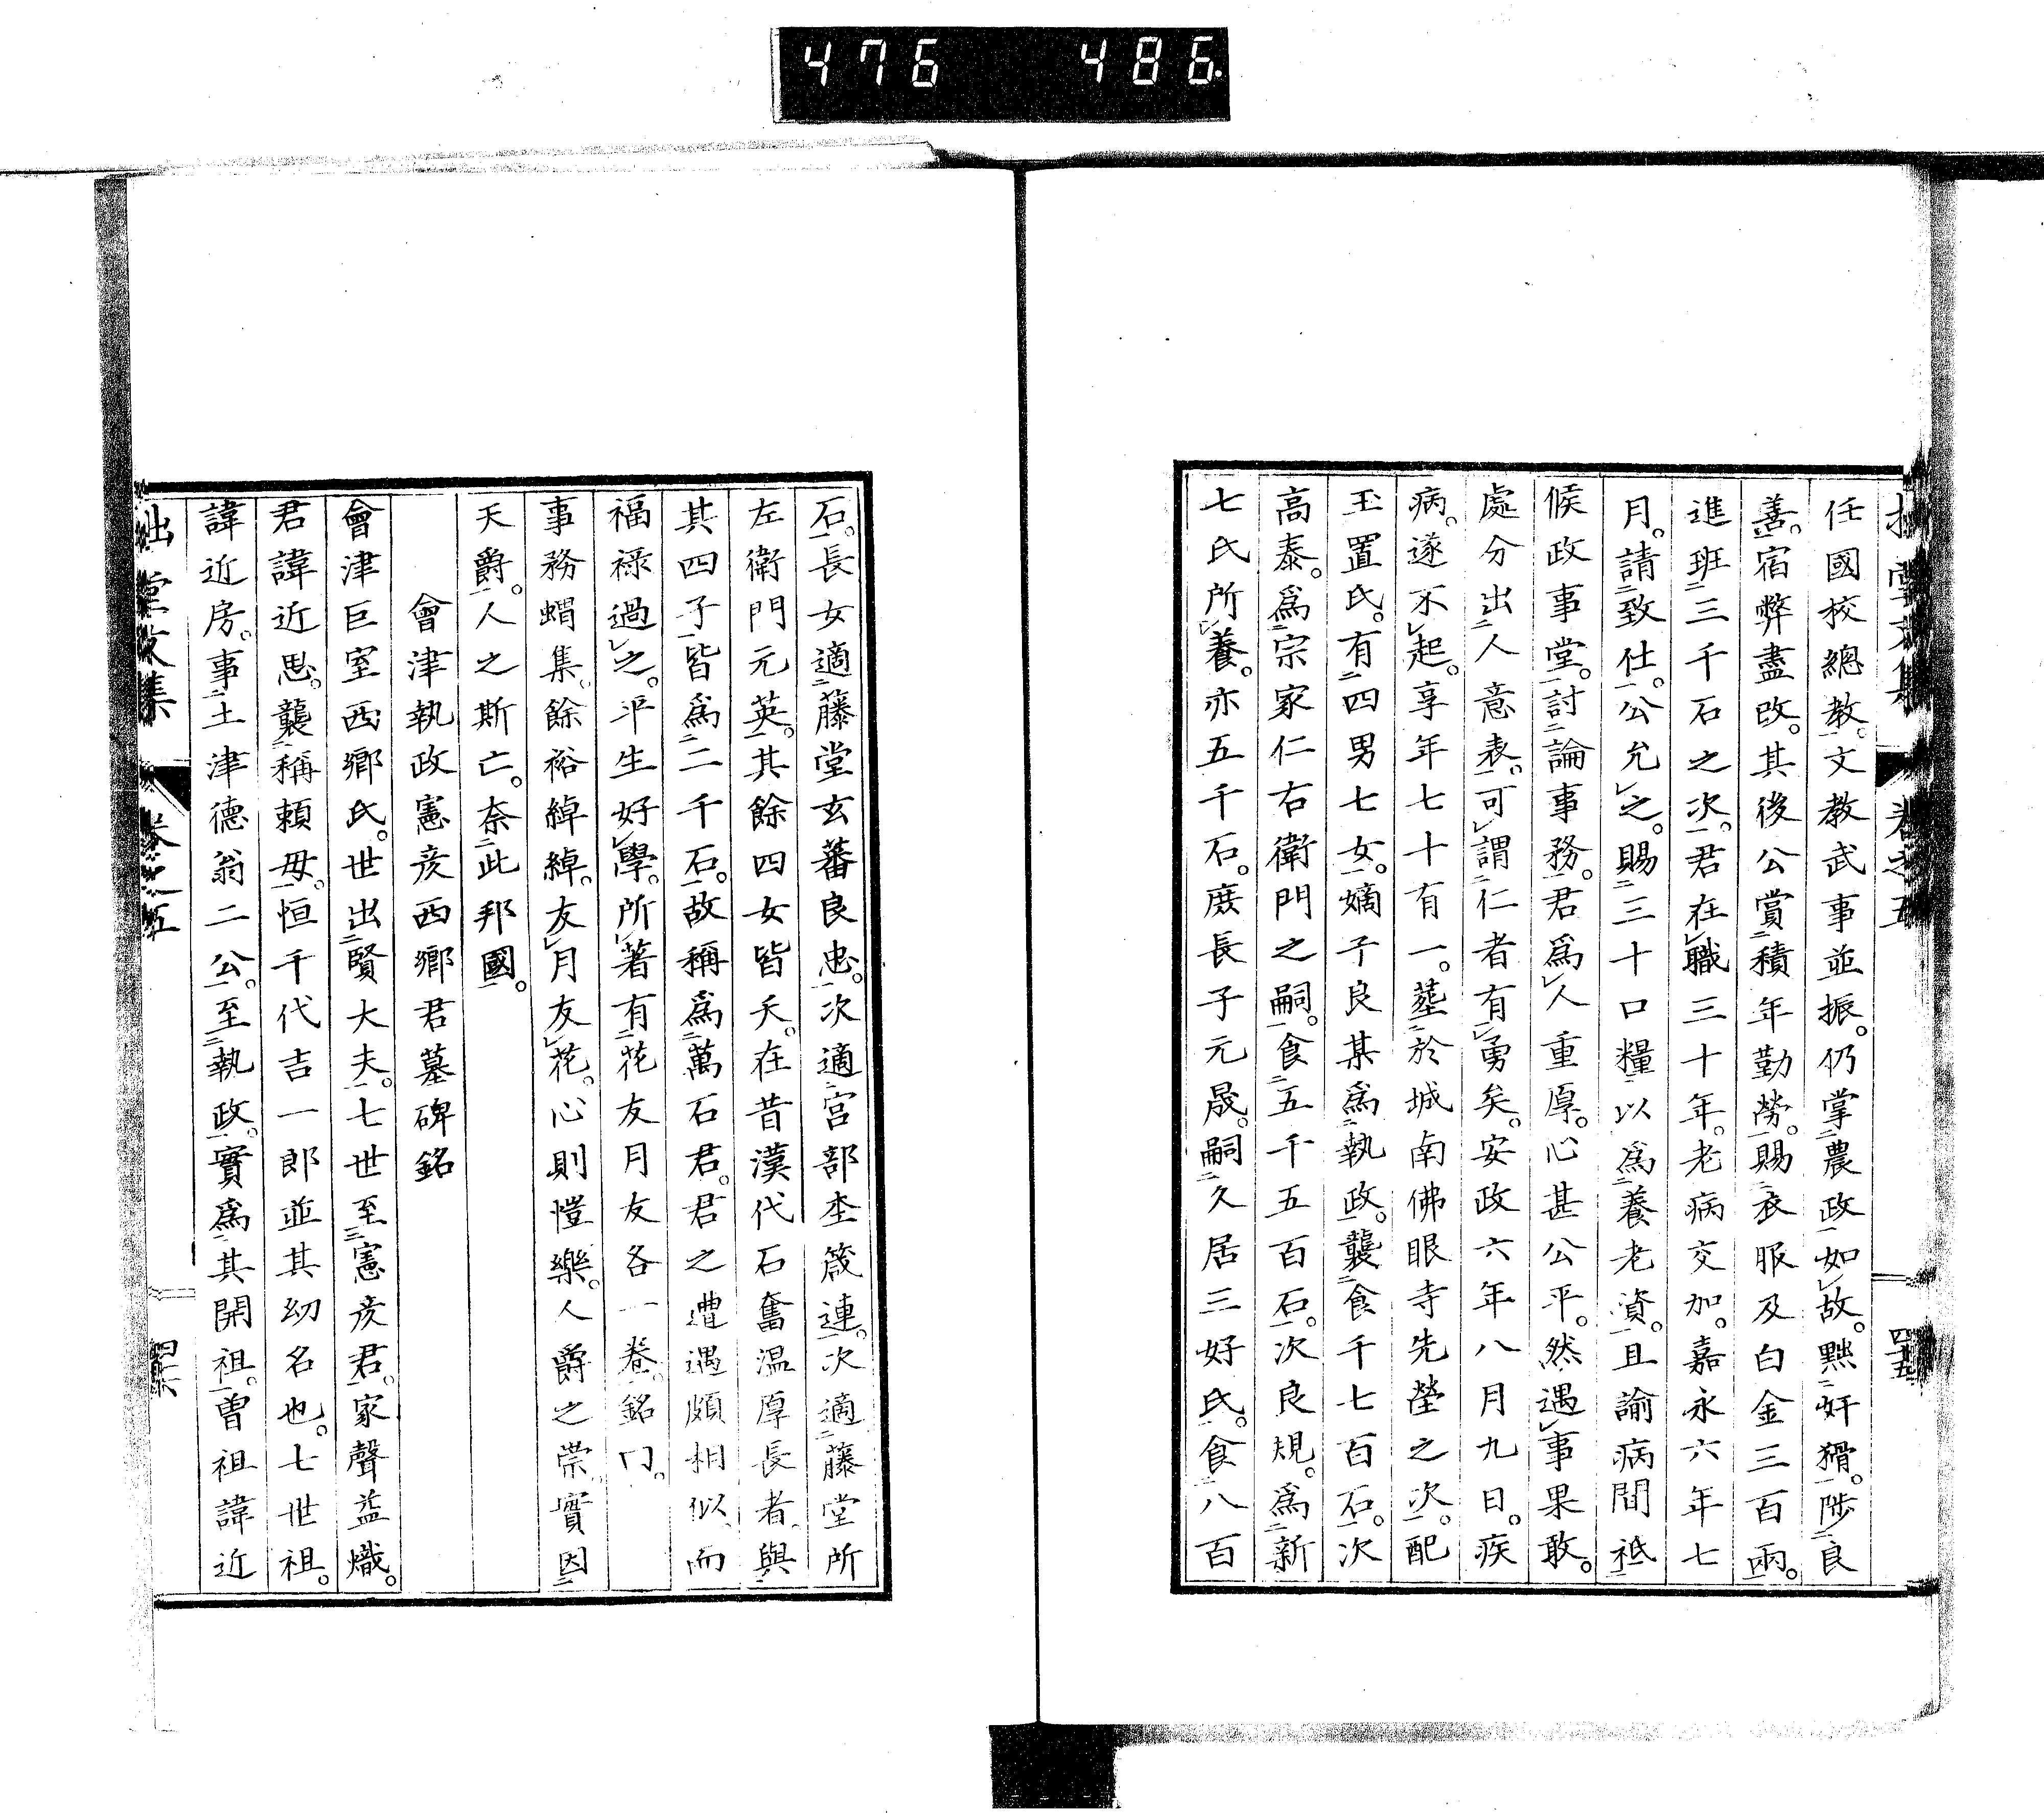 476 486
拙堂文集 卷之五 四十五
任國校總教。文教武事並振。仍掌農政如故。黜奸猾。陟良
善。宿弊盡改。其後公賞積年勤勞。賜衣服及白金三百兩。
進班三千石之次。君在職三十年。老病交加。嘉永六年七
月。請致仕。公允之。賜三十口糧以爲養老資。且諭病間祗
候政事堂。討論事務。君爲人重厚。心甚公平。然遇事果敢。
處分出人意表。可謂仁者有勇矣。安政六年八月九日。疾
病。遂不起。享年七十有一。葬於城南佛眼寺先塋之次。配
玉置氏。有四男七女。嫡子良某爲執政。襲食千七百石。次
高泰。爲宗家仁右衛門之嗣。食五千五百石。次良規。爲新
七氏所養。亦五千石。庶長子元晟。嗣久居三好氏。食八百
石。長女適藤堂玄蕃良忠。次適宮部杢箴連。次適藤堂所
左衛門元英。其餘四女皆夭。在昔漢代石奮温厚長者。與
其四子皆爲二千石。故稱爲萬石君。君之遭遇頗相似。而
福祿過之。平生好學。所著有花友月友各一卷。銘曰。
事務蝟集。餘裕綽綽。友月友花。心則愷樂。人爵之崇。實因
天爵。人之斯亡。奈此邦國。
會津執政憲彦西鄉君墓碑銘
會津巨室西鄉氏。世出賢大夫。七世至憲彦君。家聲益熾。
君諱近思。襲稱賴母。恒千代吉一郎並其幼名也。七世祖。
諱近房。事土津德翁二公。至執政。實爲其開祖。曾祖諱近
拙堂文集 卷之五 四十六